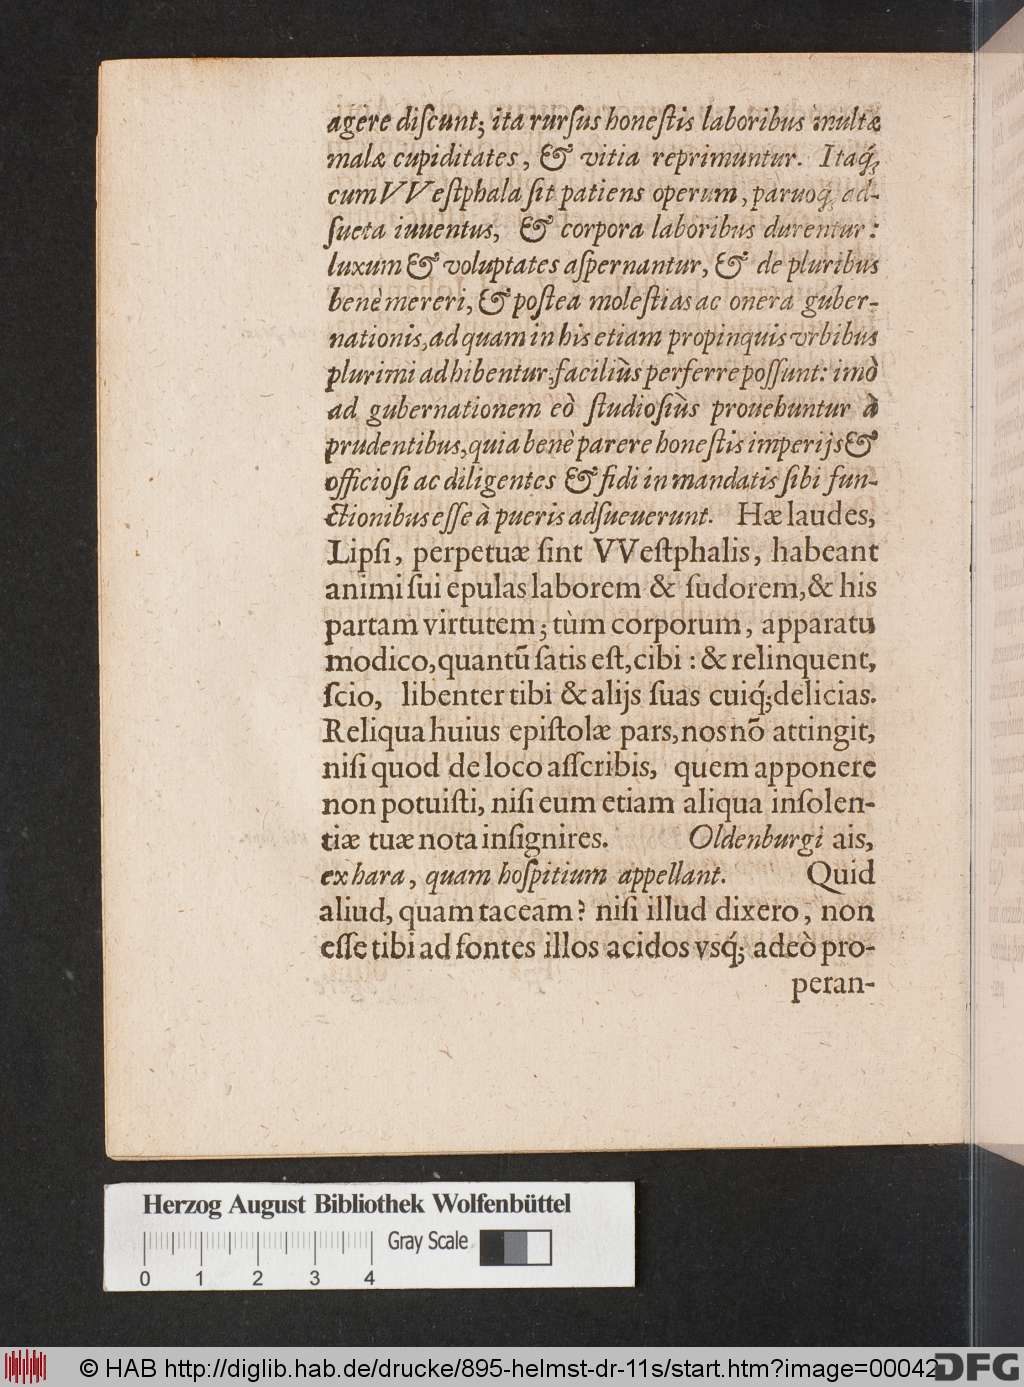 agere diſcunt; ita rurſus honeſtis laboribus multæ
malæ cupiditates, & vitia reprimuntur. Itaq́;
cum VVeſtphala ſit patiens operum, paruoq́; ad-
ſueta iuuentus, & corpora laboribus durentur:
luxum & voluptates aſpernantur, & de pluribus
benè mereri, & poſtea moleſtias ac onera guber-
nationis, ad quam in his etiam propinquis vrbibus
plurimi adhibentur; faciliùs perferre poſſunt: imò
ad gubernationem eò ſtudioſiùs prouehuntur à
prudentibus, quia benè parere honeſtis imperijs &
officioſi ac diligentes & fidi in mandatis ſibi fun-
ctionibus eſſe à pueris adſueuerunt. Hæ laudes,
Lipſi, perpetuæ ſint VVeſtphalis, habeant
animi ſui epulas laborem & ſudorem, & his
partam virtutem; tùm corporum, apparatu
modico, quantũ ſatis eſt, cibi: & relinquent,
ſcio, libenter tibi & alijs ſuas cuiq́; delicias.
Reliqua huius epiſtolæ pars, nos nõ attingit,
niſi quod de loco aſſcribis, quem apponere
non potuiſti, niſi eum etiam aliqua inſolen-
tiæ tuæ nota inſignires. Oldenburgi ais,
ex hara, quam hoſpitium appellant. Quid
aliud, quam taceam? niſi illud dixero, non
eſſe tibi ad fontes illos acidos vsq́; adeò pro-
peran-
Herzog August Bibliothek Wolfenbüttel
Gray Scale
0 1 2 3 4
© HAB http://diglib.hab.de/drucke/895-helmst-dr-11s/start.htm?image=00042
DFG